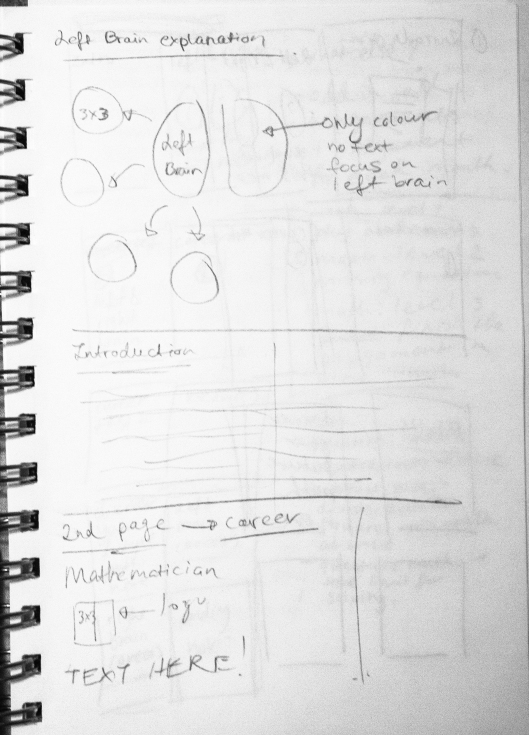 Left Brain explanation
3x3
Left
Brain
only colour
no text
focus on
left brain
Introduction
2nd page → career
Mathematician
3x3
TEXT HERE!